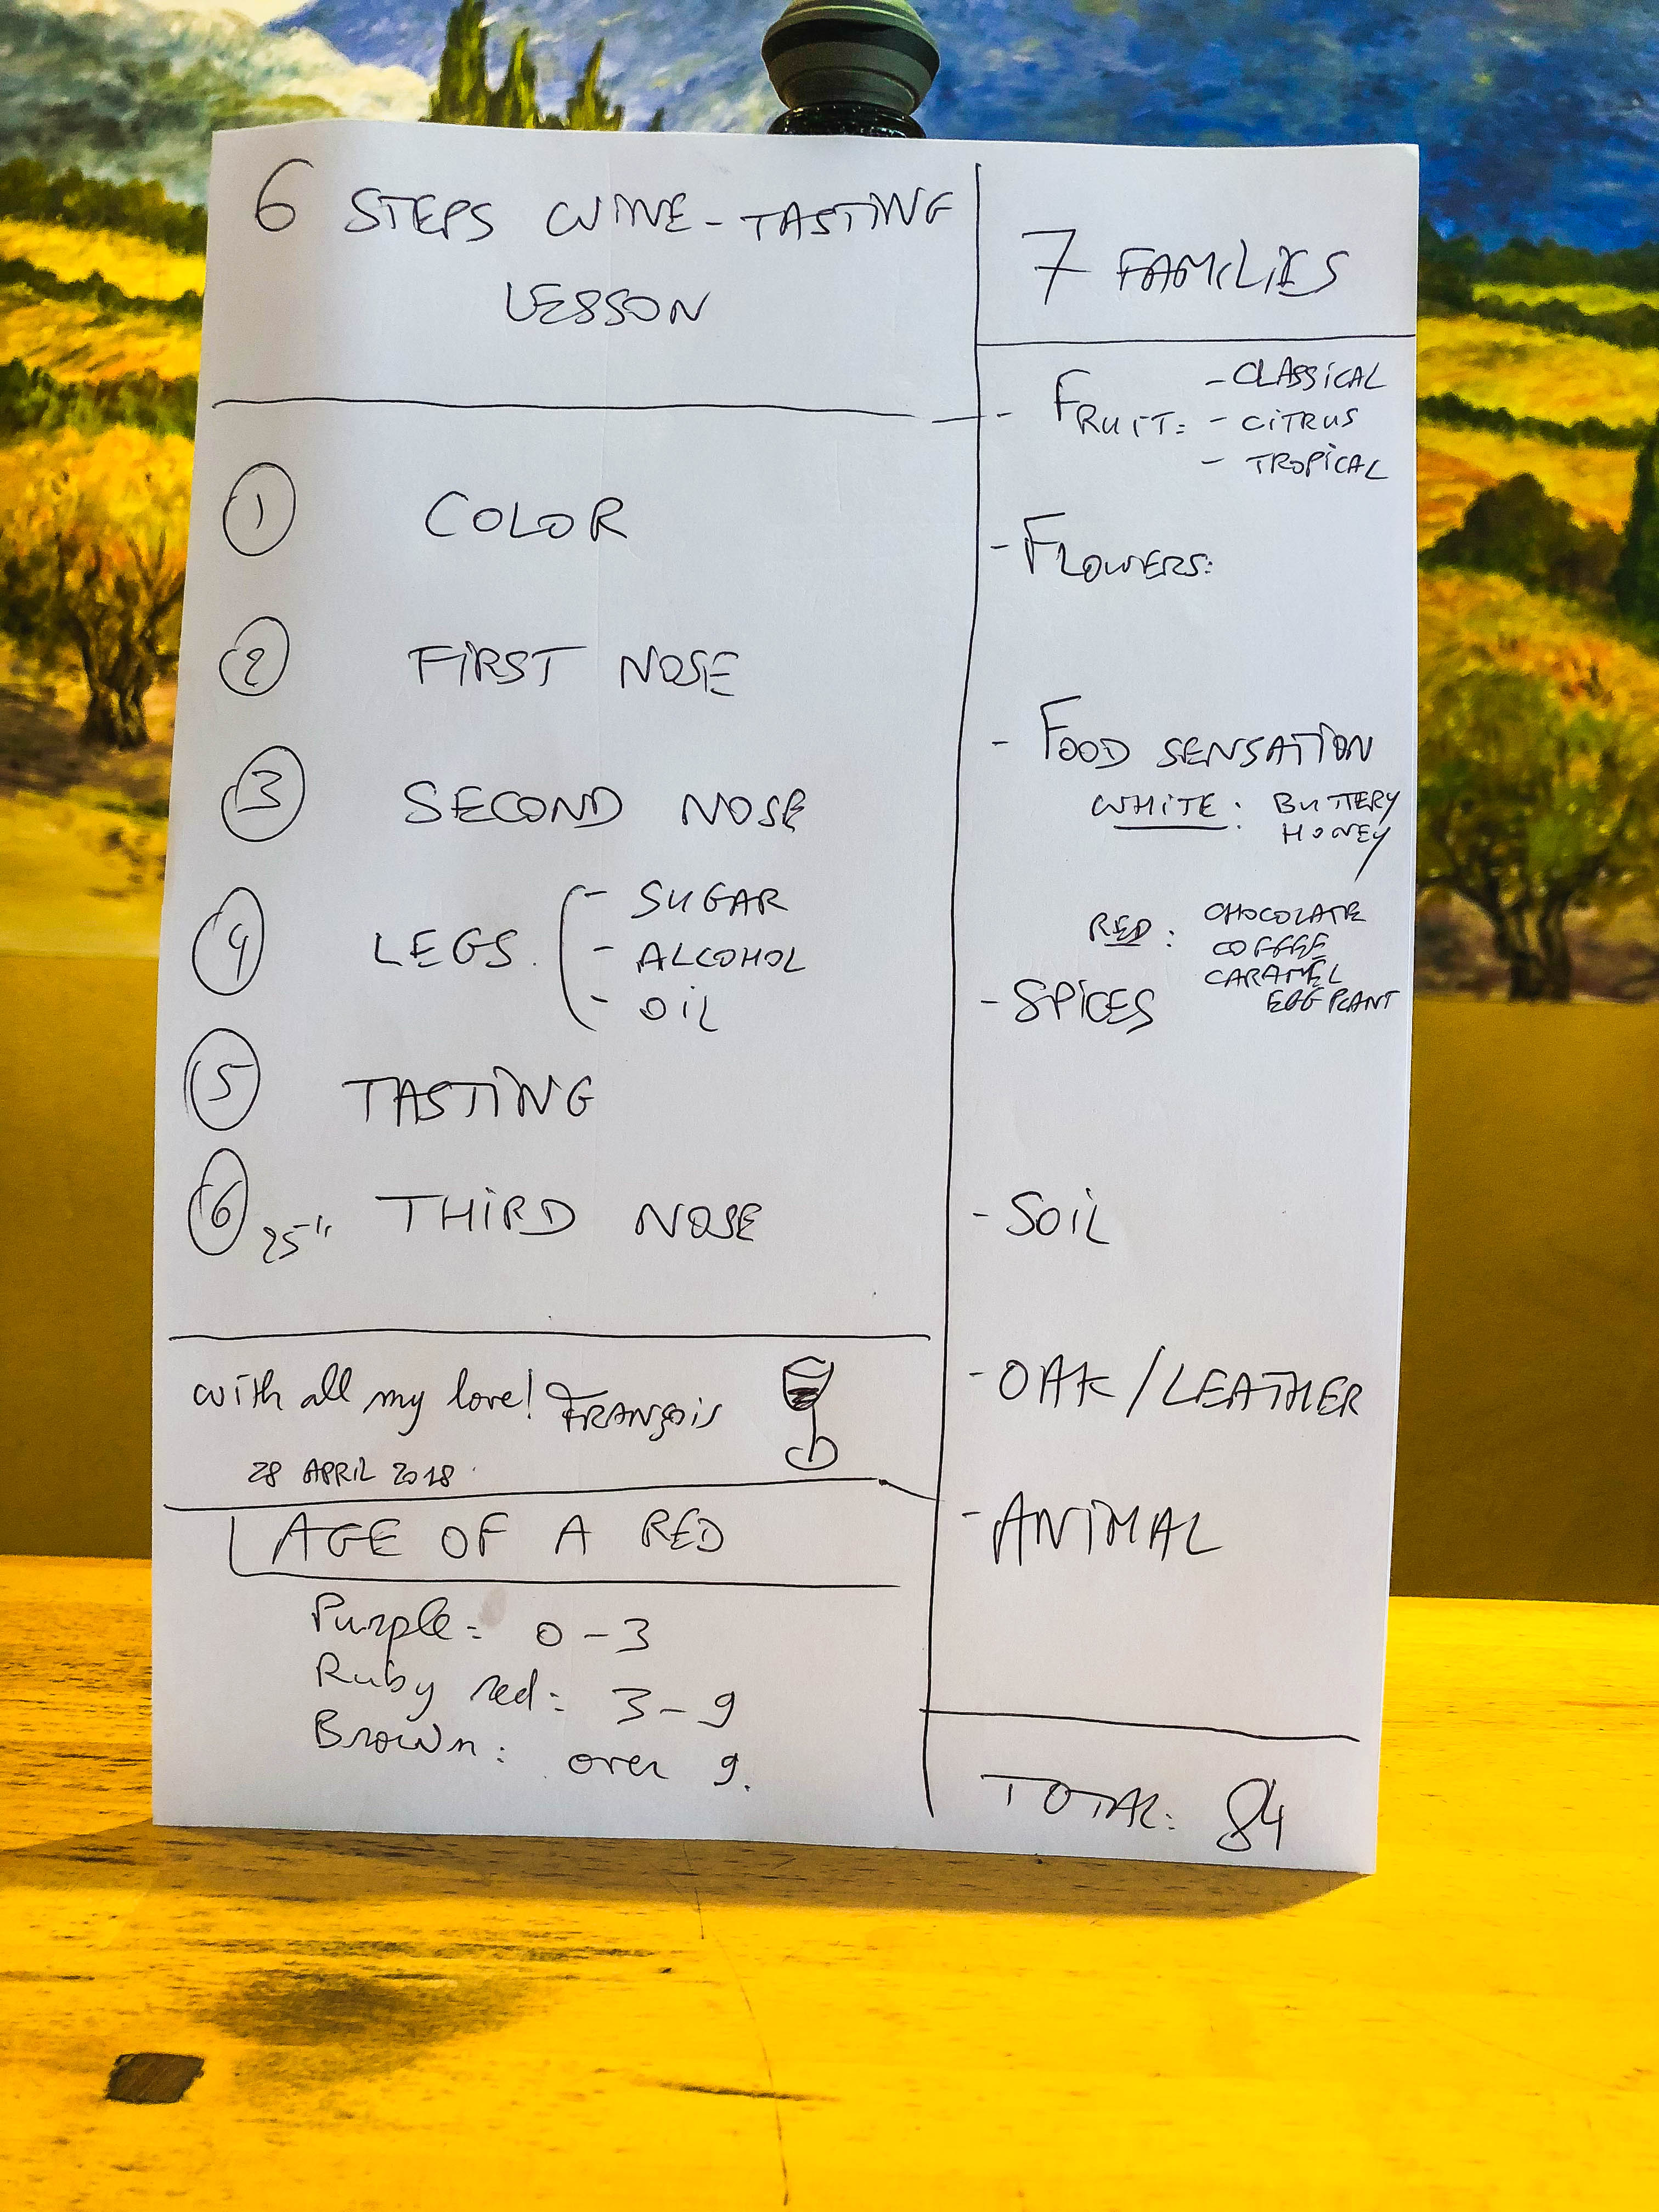 6 STEPS WINE-TASTING
LESSON
1 COLOR
2 FIRST NOSE
3 SECOND NOSE
4 LEGS. - SUGAR
- ALCOHOL
- OIL
5 TASTING
6 25" THIRD NOSE
with all my love! FRANÇOIS
28 APRIL 2018
AGE OF A RED
Purple: 0-3
Ruby red: 3-9
Brown: over 9.
7 FAMILIES
- CLASSICAL
- FRUIT: - CITRUS
- TROPICAL
- FLOWERS:
- FOOD SENSATION
WHITE: BUTTERY
HONEY
RED: CHOCOLATE
COFFEE
CARAMEL
EGGPLANT
- SPICES
- SOIL
- OAK/LEATHER
- ANIMAL
TOTAL: 84